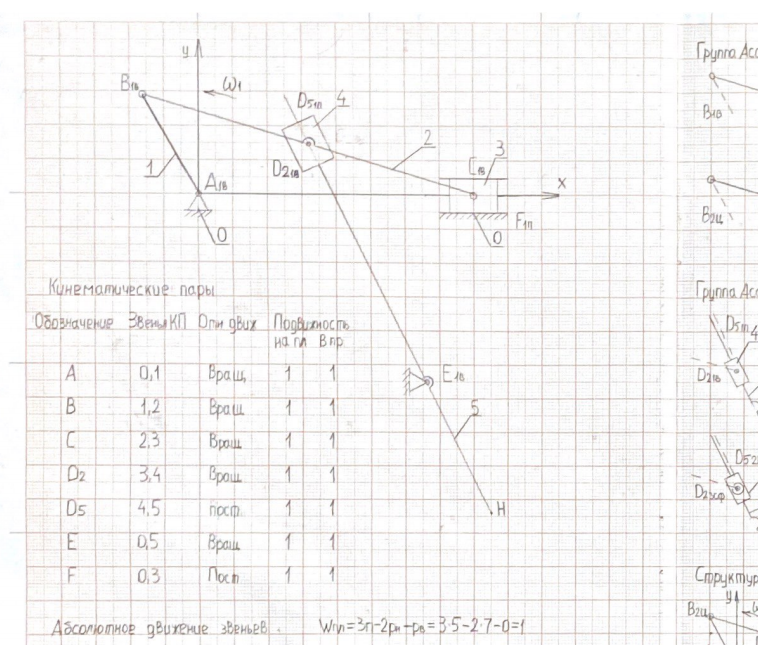 y
B₁в
ω₁
D₅₁п
4
1
2
C₁в
3
D₂₁в
A₁в
x
F₁п
0
0
E₁в
5
H
Кинематические пары
Обозначение Звенья КП Отн движ Подвижность
на пл В пр.
A 0,1 Вращ. 1 1
B 1,2 Вращ 1 1
C 2,3 Вращ 1 1
D₂ 3,4 Вращ 1 1
D₅ 4,5 пост. 1 1
E 0,5 Вращ 1 1
F 0,3 Пост 1 1
Абсолютное движение звеньев. Wпл=3n-2pн-pв=3·5-2·7-0=1
Группа Асс
B₁в
B₂ц
Группа Асс
D₅₁п 4
D₂₁в
D₅₂
D₂₃сф
Структур
y
B₂ц